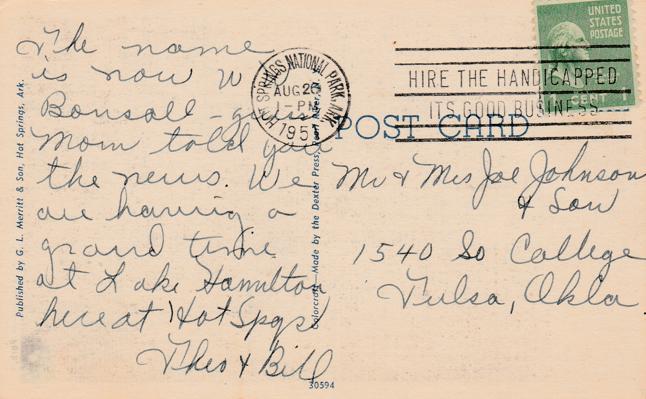 The name
is now W
Bonsall - guess
Mom told you
the news. We
are having a
grand time
at Lake Hamilton
here at Hot Spgs
Theo & Bill
HOT SPRINGS NATIONAL PARK, ARK.
AUG 26
1 - PM
195
HIRE THE HANDICAPPED
ITS GOOD BUSINESS
UNITED
STATES
POSTAGE
CENT
POST CARD
Mr & Mrs Joe Johnson
& Son
1540 So College
Tulsa, Okla.
Published by G. L. Merritt & Son, Hot Springs, Ark.
Colorcraft—Made by the Dexter Press,
30594